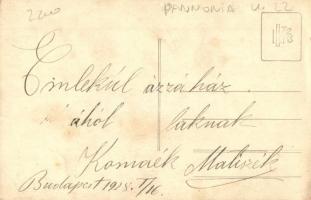 2200
PANNONIA U. 22
Emlékül azzaház
ahól laknak
Komáék Matiszék
Budapest 1918. V/16.